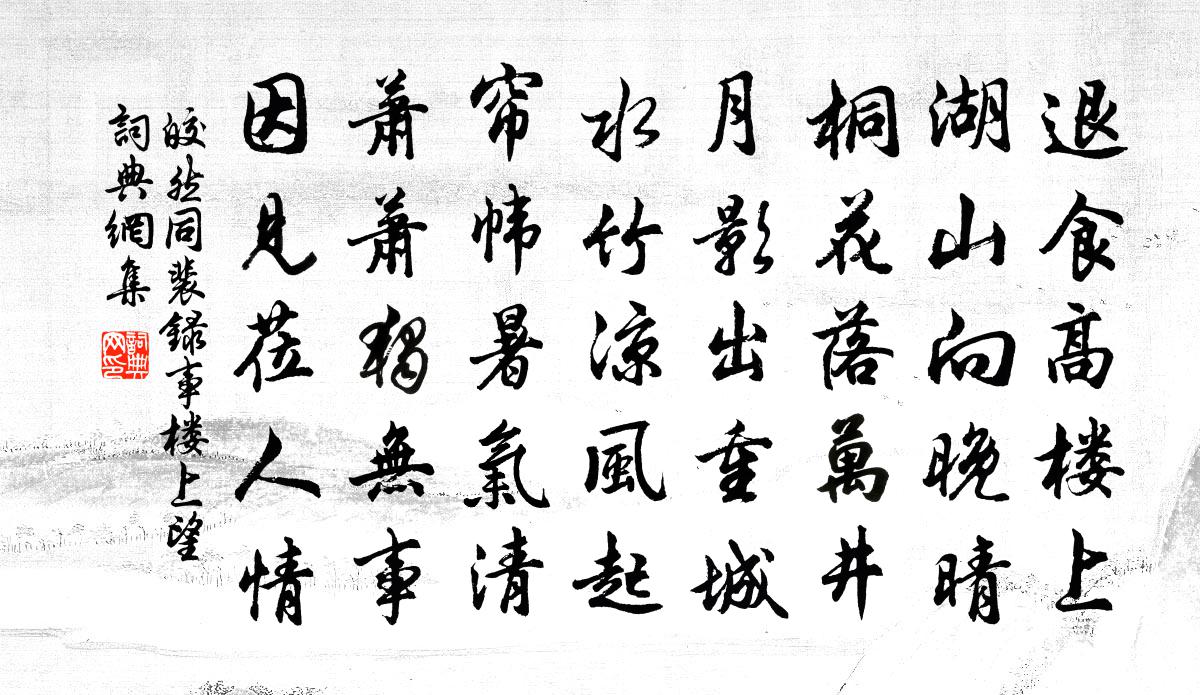 退食高楼上
湖山向晚晴
桐花落萬井
月影出重城
水竹涼風起
帘幃暑氣清
蕭蕭獨無事
因見莅人情
皎然同裴録事楼上望
詞典網集
詞典
网印